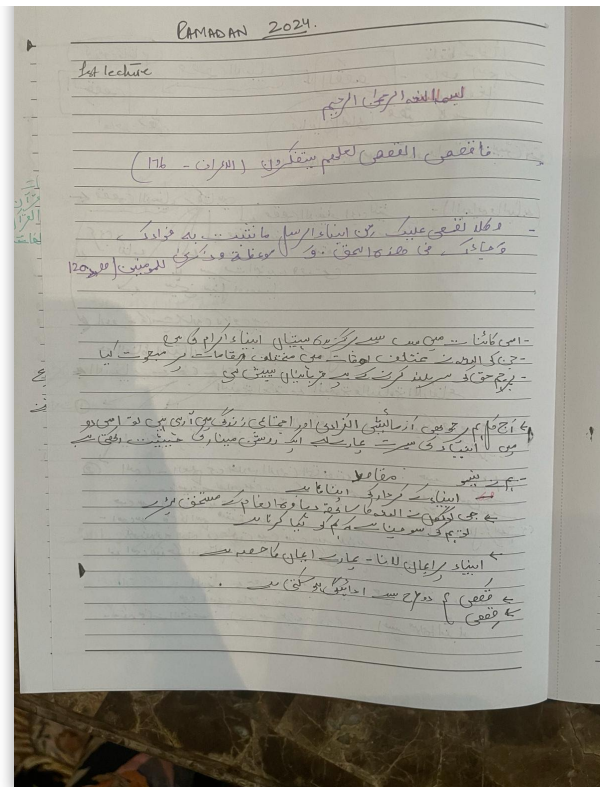 RAMADAN 2024.
1st lecture
بسم اللہ الرحمن الرحیم
فاقصص القصص لعلهم يتفكرون (الاعراف - 176)
- وکلا نقص علیک من انباء الرسل ما نثبت به فؤادک
وجاءک فی هذه الحق و موعظة وذکری للمومنین (ھود 120)
- اس کائنات میں سب سے برگزیدہ ہستیاں انبیاء اکرام کی ہے
- جن کو اللہ نے مختلف اوقات میں مختلف مقامات پر مبعوث کیا
- پرچم حق کی سر بلند کرنے کے لیے قربانیاں پیش کی
آج کل ہم پر جو بھی آزمائیشی انفرادی اور اجتماعی زندگی میں آرہی ہیں تو اسی دور
میں انبیاء کی سیرت ہمارے لئے ایک روشن مینار کی حیثیت رکھتی ہے
مقاصد
انبیاء کے کردار کو اپنانا ہے
جن لوگوں نے اللہ کا ساتھ دیا وہ انعام کے مستحق ہوئے
تو ہم کو سوچنا ہے کہ ہم کو کیا کرنا ہے
انبیاء پر ایمان لانا - ہمارے ایمان کا حصہ ہے
قصص دو طرح سے ادائیگی ہو سکتی ہے .
قصص